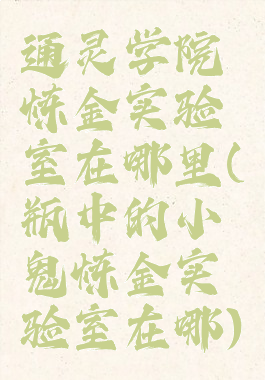 通灵学院
炼金实验
室在哪里(
瓶中的小
鬼炼金实
验室在哪)